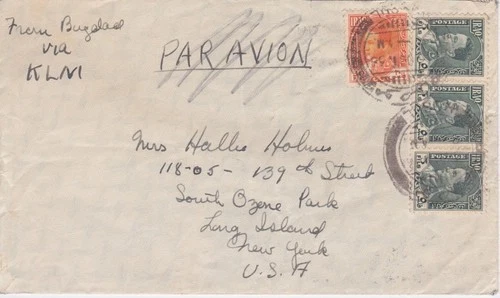 From Bugdad
via
KLM
PAR AVION
POSTAGE IRAQ
POSTAGE IRAQ
POSTAGE IRAQ
Mrs Hallie Holmes
118-05 - 139th Street
South Ozone Park
Long Island
New York
U.S.A